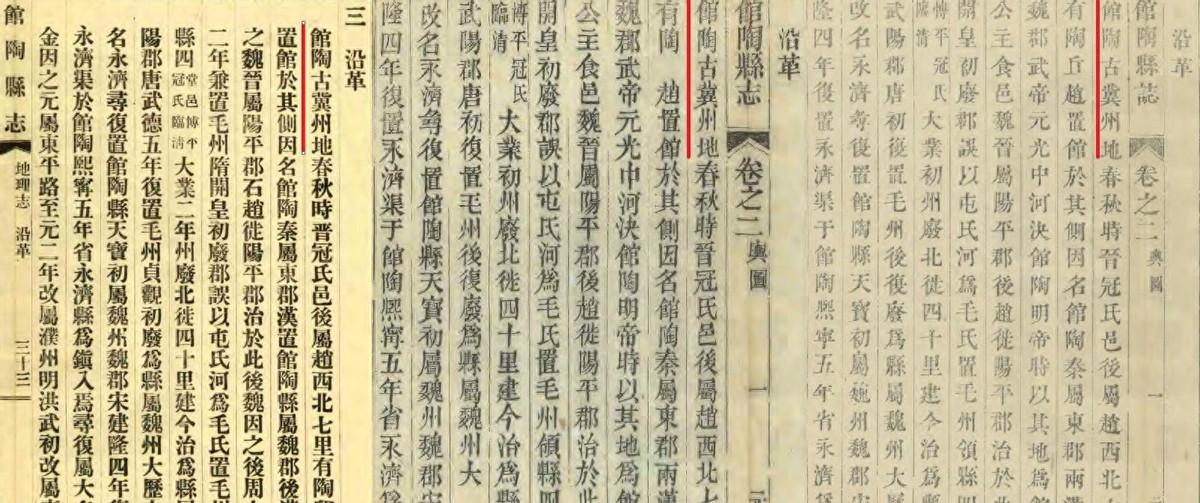 沿革
館陶縣誌 卷之二 輿圖 一
館陶古冀州地春秋時晉冠氏邑後屬趙西北
有陶丘趙置館於其側因名館陶秦屬東郡兩漢
魏郡武帝元光中河決館陶明帝時以其地為館
公主食邑魏晉屬陽平郡後趙徙陽平郡治於此
開皇初廢郡誤以屯氏河為毛氏置毛州領縣
博平 冠氏 臨清 大業初州廢北徙四十里建今治為縣
武陽郡唐初復置毛州後復廢為縣屬魏州大
改名永濟尋復置館陶縣天寶初屬魏州魏郡
隆四年復置永濟渠于館陶熙寧五年省永濟
沿革
館陶縣志 卷之二 輿圖 一
館陶古冀州地春秋時晉冠氏邑後屬趙西北七
有陶 趙置館於其側因名館陶秦屬東郡兩漢
魏郡武帝元光中河決館陶明帝時以其地為館
公主食邑魏晉屬陽平郡後趙徙陽平郡治於此
開皇初廢郡誤以屯氏河為毛氏置毛州領縣四
博平 冠氏 臨清 大業初州廢北徙四十里建今治為縣
武陽郡唐初復置毛州後復廢為縣屬魏州大
改名永濟尋復置館陶縣天寶初屬魏州魏郡宋
隆四年復置永濟渠于館陶熙寧五年省永濟為
三 沿革
館陶古冀州地春秋時晉冠氏邑後屬趙西北七里有陶
置館於其側因名館陶秦屬東郡漢置館陶縣屬魏郡後
之魏晉屬陽平郡石趙徙陽平郡治於此後魏因之後周
二年兼置毛州隋開皇初廢郡誤以屯氏河為毛氏置毛
縣四 堂邑 博平 冠氏 臨清 大業二年州廢北徙四十里建今治為縣
陽郡唐武德五年復置毛州貞觀初廢為縣屬魏州大歷
名永濟尋復置館陶縣天寶初屬魏州魏郡宋建隆四年復
永濟渠於館陶熙寧五年省永濟縣為鎮入焉尋復屬大名
金因之元屬東平路至元二年改屬濮州明洪武初改屬
館陶縣志 地理志 沿革 三十三